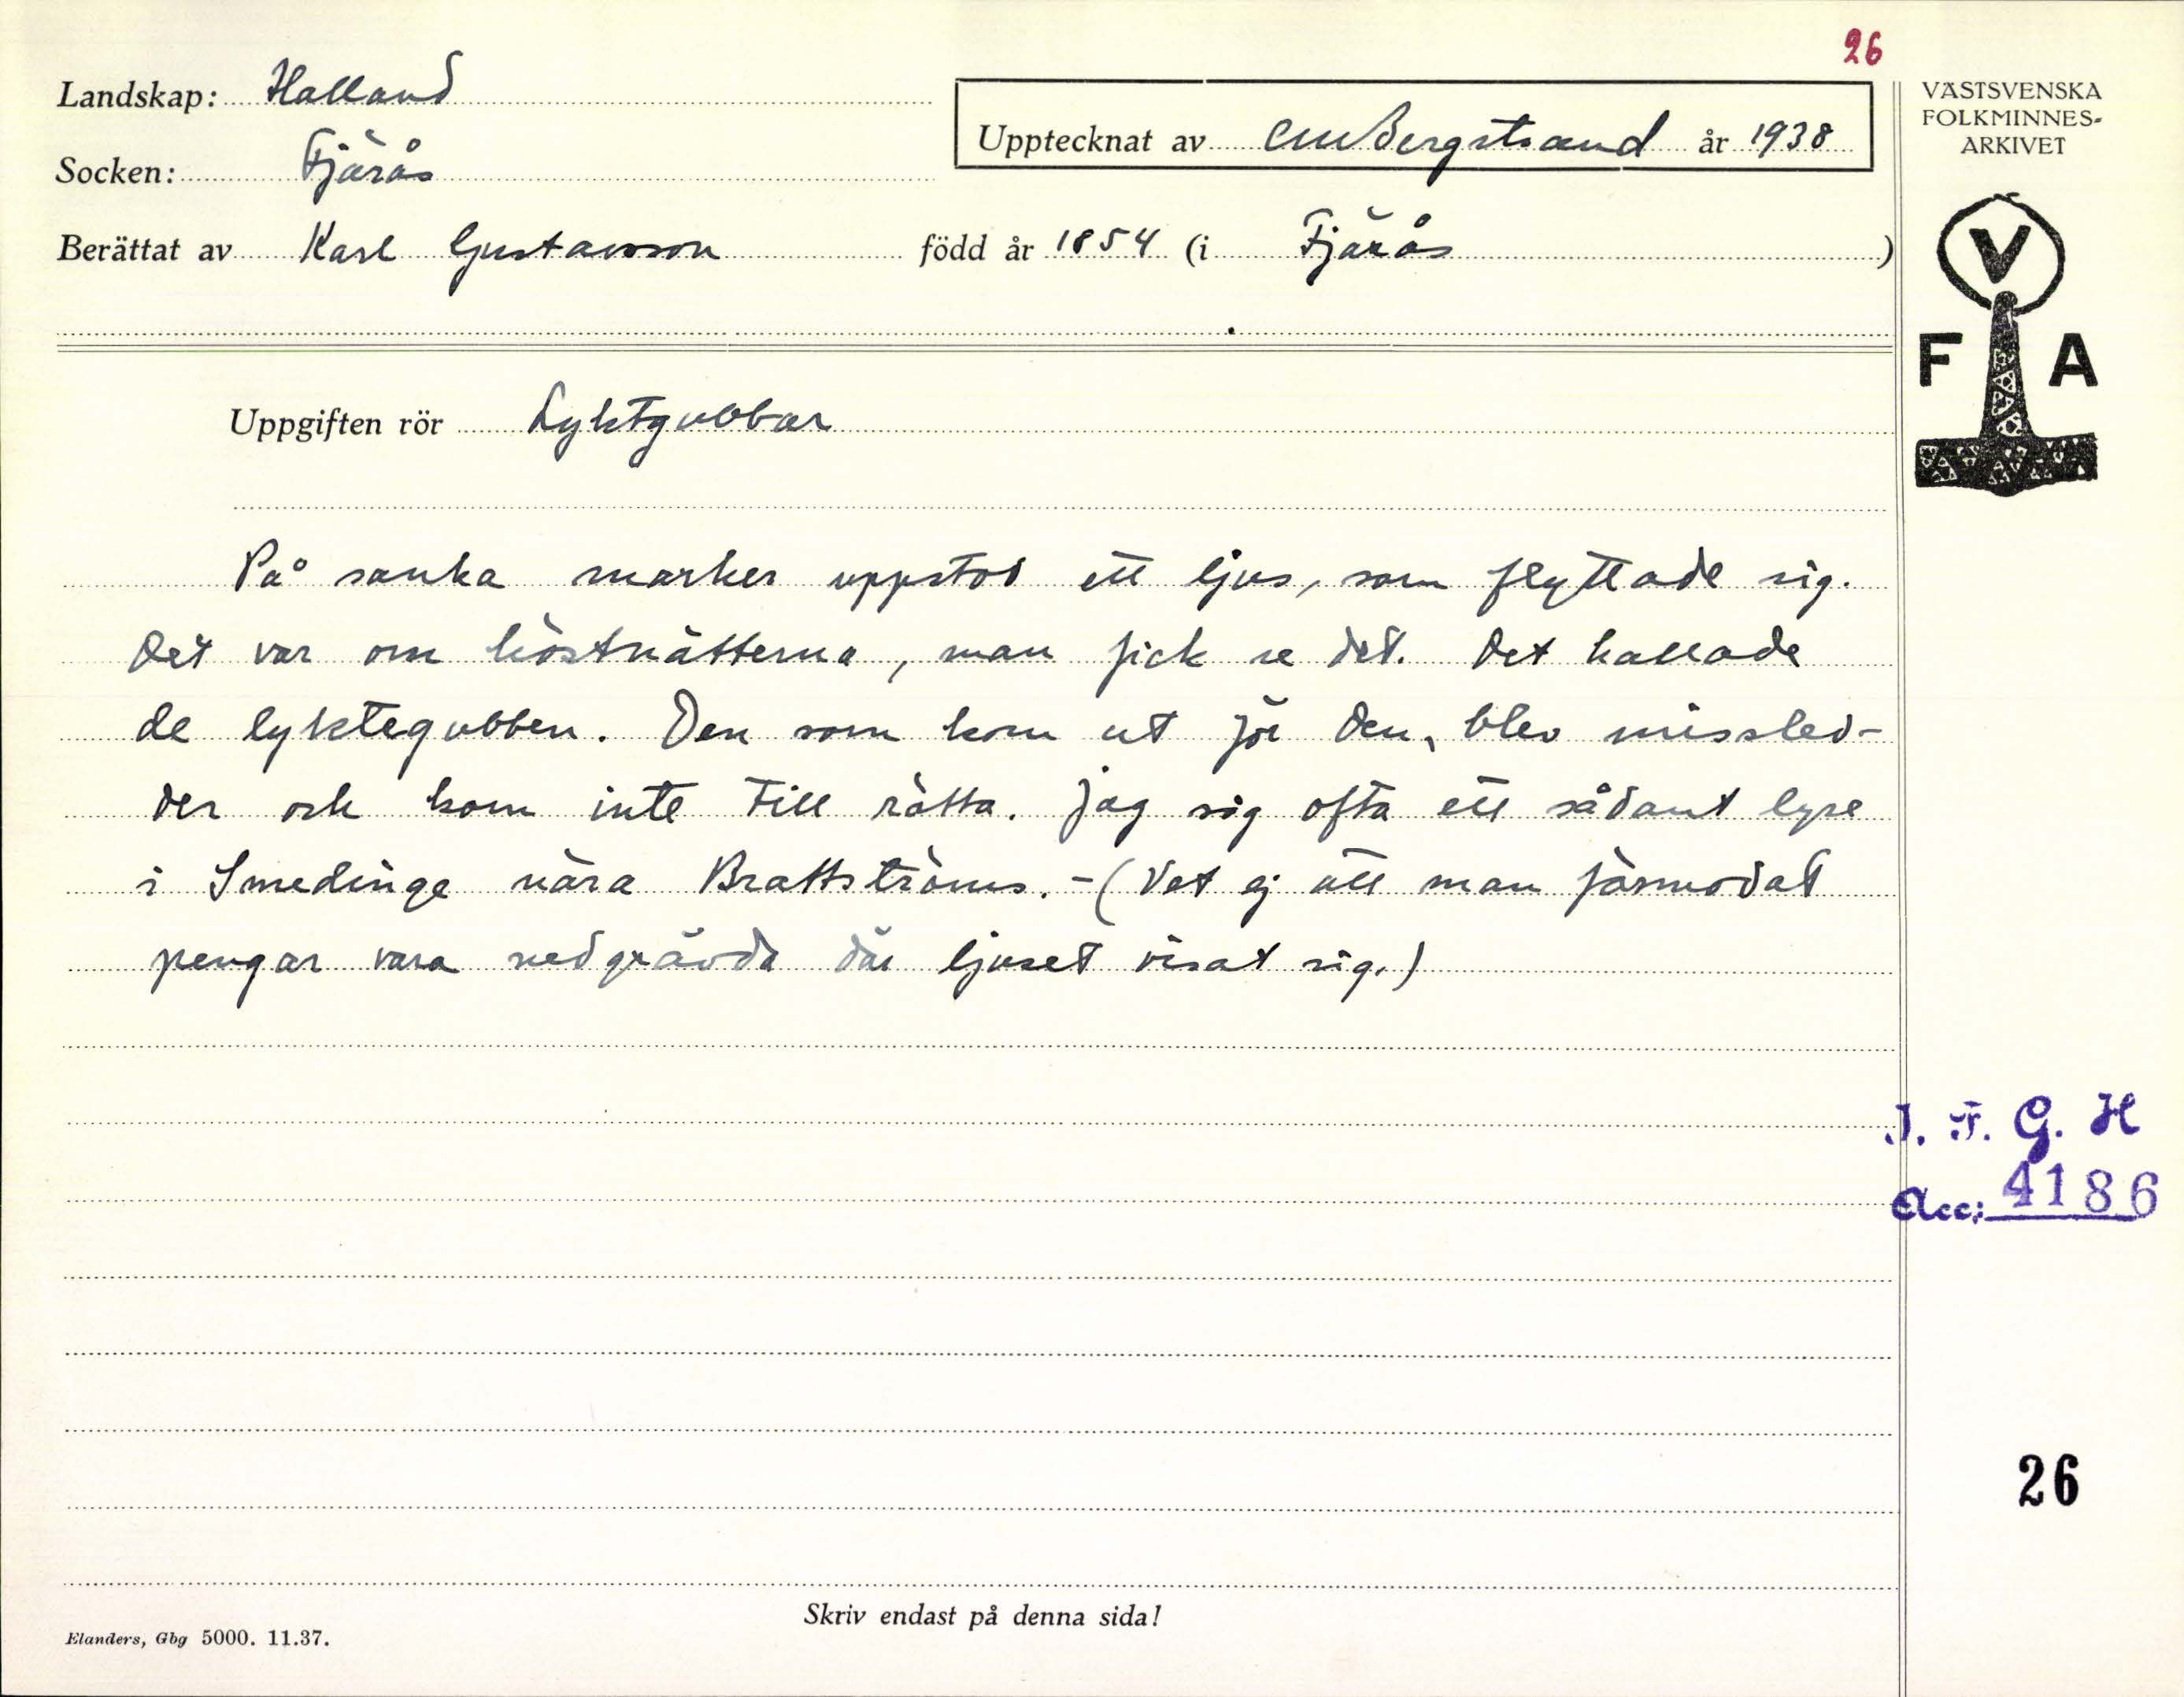 26
Landskap: Halland
Upptecknat av CMBergstrand år 1938
Socken: Fjärås
Berättat av Karl Gustavsson född år 1854 (i Fjärås)
VÄSTSVENSKA
FOLKMINNES-
ARKIVET
V
F A
Uppgiften rör Lyktgubbar
På sanka marker uppstod ett ljus, som flyttade sig.
Det var om höstnätterna, man fick se det. Det kallade
de lyktegubben. Den som kom ut för den, blev missled-
der och kom inte till rätta. Jag såg ofta ett sådant lyse
i Smedinge nära Brattströms. - (Vet ej att man förmodat
pengar vara nedgrävda där ljuset visat sig.)
I. F. G. H
Acc: 4186
26
Skriv endast på denna sida!
Elanders, Gbg 5000. 11.37.